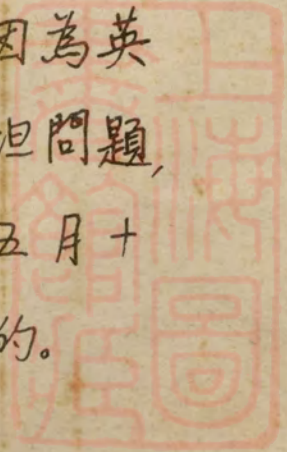 因為英
但問題,
五月十
的。
上海圖